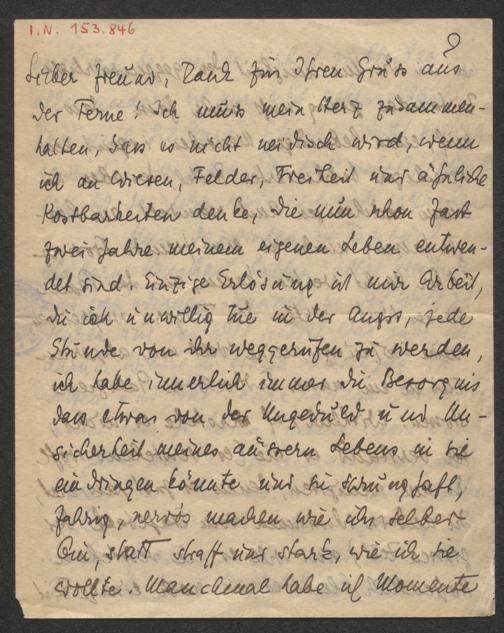 I.N. 153.846
Lieber Freund, Dank für Ihren Gruss aus
der Ferne! Ich muss mein Herz zusammen-
halten, dass es nicht neidisch wird, wenn
ich an Wiesen, Felder, Freiheit und ähnliche
Kostbarkeiten denke, die nun schon fast
zwei Jahre meinem eigenen Leben entwen-
det sind. Einzige Erlösung ist mir Arbeit,
die ich unwillig tue in der Angst, jede
Stunde von ihr weggerufen zu werden,
ich habe innerlich immer die Besorgnis
dass etwas von der Ungeduld und Un-
sicherheit meines äussern Lebens in sie
eindringen könnte und sie sprunghaft,
fahrig, nervös machen wie ich selber
bin, statt straff und stark, wie ich sie
wollte. Manchmal habe ich Momente